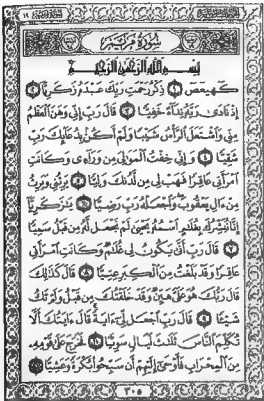 سُورَةُ مَرْيَمَ
بِسْمِ اللَّهِ الرَّحْمَٰنِ الرَّحِيمِ
كهيعص ١ ذِكْرُ رَحْمَتِ رَبِّكَ عَبْدَهُ زَكَرِيَّا ٢
إِذْ نَادَى رَبَّهُ نِدَاءً خَفِيًّا ٣ قَالَ رَبِّ إِنِّي وَهَنَ الْعَظْمُ
مِنِّي وَاشْتَعَلَ الرَّأْسُ شَيْبًا وَلَمْ أَكُن بِدُعَائِكَ رَبِّ
شَقِيًّا ٤ وَإِنِّي خِفْتُ الْمَوَالِيَ مِن وَرَاءِي وَكَانَتِ
امْرَأَتِي عَاقِرًا فَهَبْ لِي مِن لَّدُنكَ وَلِيًّا ٥ يَرِثُنِي وَيَرِثُ
مِنْ ءَالِ يَعْقُوبَ وَاجْعَلْهُ رَبِّ رَضِيًّا ٦ يَٰزَكَرِيَّا
إِنَّا نُبَشِّرُكَ بِغُلَٰمٍ اسْمُهُ يَحْيَى لَمْ نَجْعَل لَّهُ مِن قَبْلُ سَمِيًّا
٧ قَالَ رَبِّ أَنَّى يَكُونُ لِي غُلَٰمٌ وَكَانَتِ امْرَأَتِي
عَاقِرًا وَقَدْ بَلَغْتُ مِنَ الْكِبَرِ عِتِيًّا ٨ قَالَ كَذَٰلِكَ
قَالَ رَبُّكَ هُوَ عَلَيَّ هَيِّنٌ وَقَدْ خَلَقْتُكَ مِن قَبْلُ وَلَمْ تَكُ
شَيْئًا ٩ قَالَ رَبِّ اجْعَل لِّي ءَايَةً قَالَ ءَايَتُكَ أَلَّا
تُكَلِّمَ النَّاسَ ثَلَٰثَ لَيَالٍ سَوِيًّا ١٠ فَخَرَجَ عَلَى قَوْمِهِ
مِنَ الْمِحْرَابِ فَأَوْحَى إِلَيْهِمْ أَن سَبِّحُوا بُكْرَةً وَعَشِيًّا ١١
٣٠٥